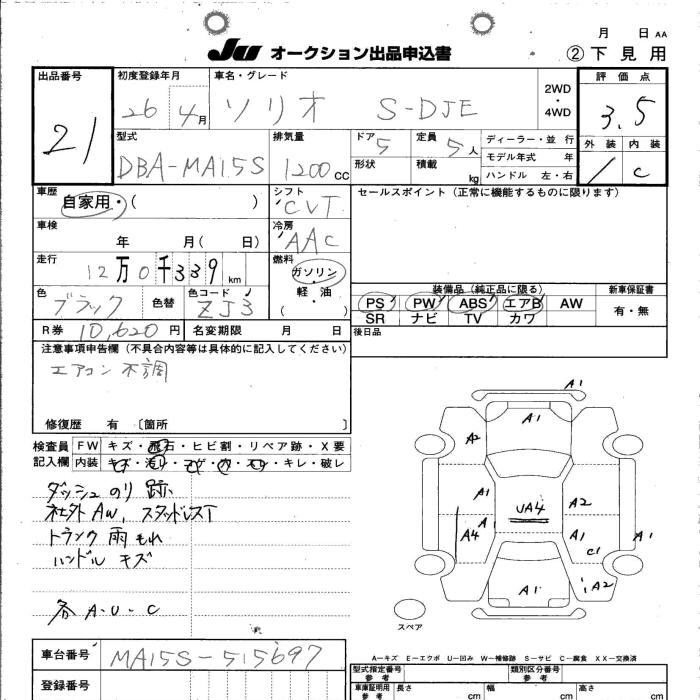 月 日 AA
JU オークション出品申込書 ②下見用
出品番号 初度登録年月 車名・グレード 2WD・4WD 評価点
21 26 4月 ソリオ S-DJE 3.5
型式 排気量 ドア 定員 ディーラー・並行 外装 内装
DBA-MA15S 1200cc 5 5人 モデル年式 年 / C
形状 積載 kg ハンドル 左・右
車歴 シフト セールスポイント(正常に機能するものに限ります)
自家用・( ) CVT
車検 冷房
年 月( 日) AAC
走行 燃料
12万0千339km ガソリン・軽油・( )
装備品(純正品に限る) 新車保証書
色 色替 色コード PS PW ABS エアB AW 有・無
ブラック ZJ3 SR ナビ TV カワ
R券 10,620円 名変期限 月 日 後日品
注意事項申告欄(不具合内容等は具体的に記入してください)
エアコン不調
修復歴 有 〔箇所 〕
検査員記入欄 FW キズ・飛石・ヒビ割・リペア跡・X要
内装 キレ・破レ
ダッシュ のり 跡
社外AW, スタッドレスT
トランク雨もれ
ハンドル キズ
各A・U・C
A1
A1
A2
A1 UA4 A2
A4 A1 A1 A1
C1
A1 A2
スペア
A-キズ E-エクボ U-凹み W-補修跡 S-サビ C-腐食 XX-交換済
車台番号 MA15S-515697
型式指定番号 参考 類別区分番号 参考
登録番号 車庫証明用 参考 長さ cm 幅 cm 高さ cm